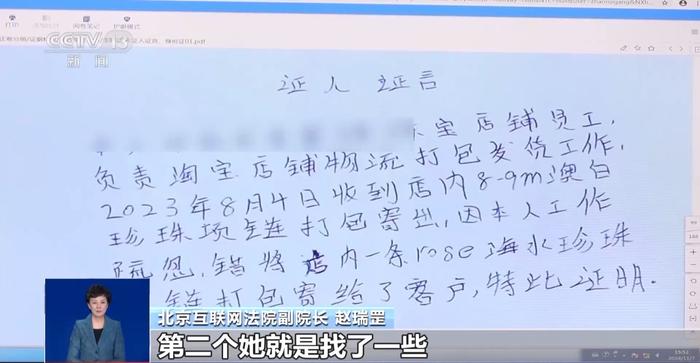 打印
CCTV 13
新闻
证人证言
宝店铺员工,
负责淘宝店铺物流打包发货工作,
2023年8月4日收到店内8-9m澳白
珍珠项链打包寄出,因本人工作
疏忽,错将店内一条rose海水珍珠
链打包寄给了客户,特此证明.
北京互联网法院副院长 赵瑞罡
第二个她就是找了一些